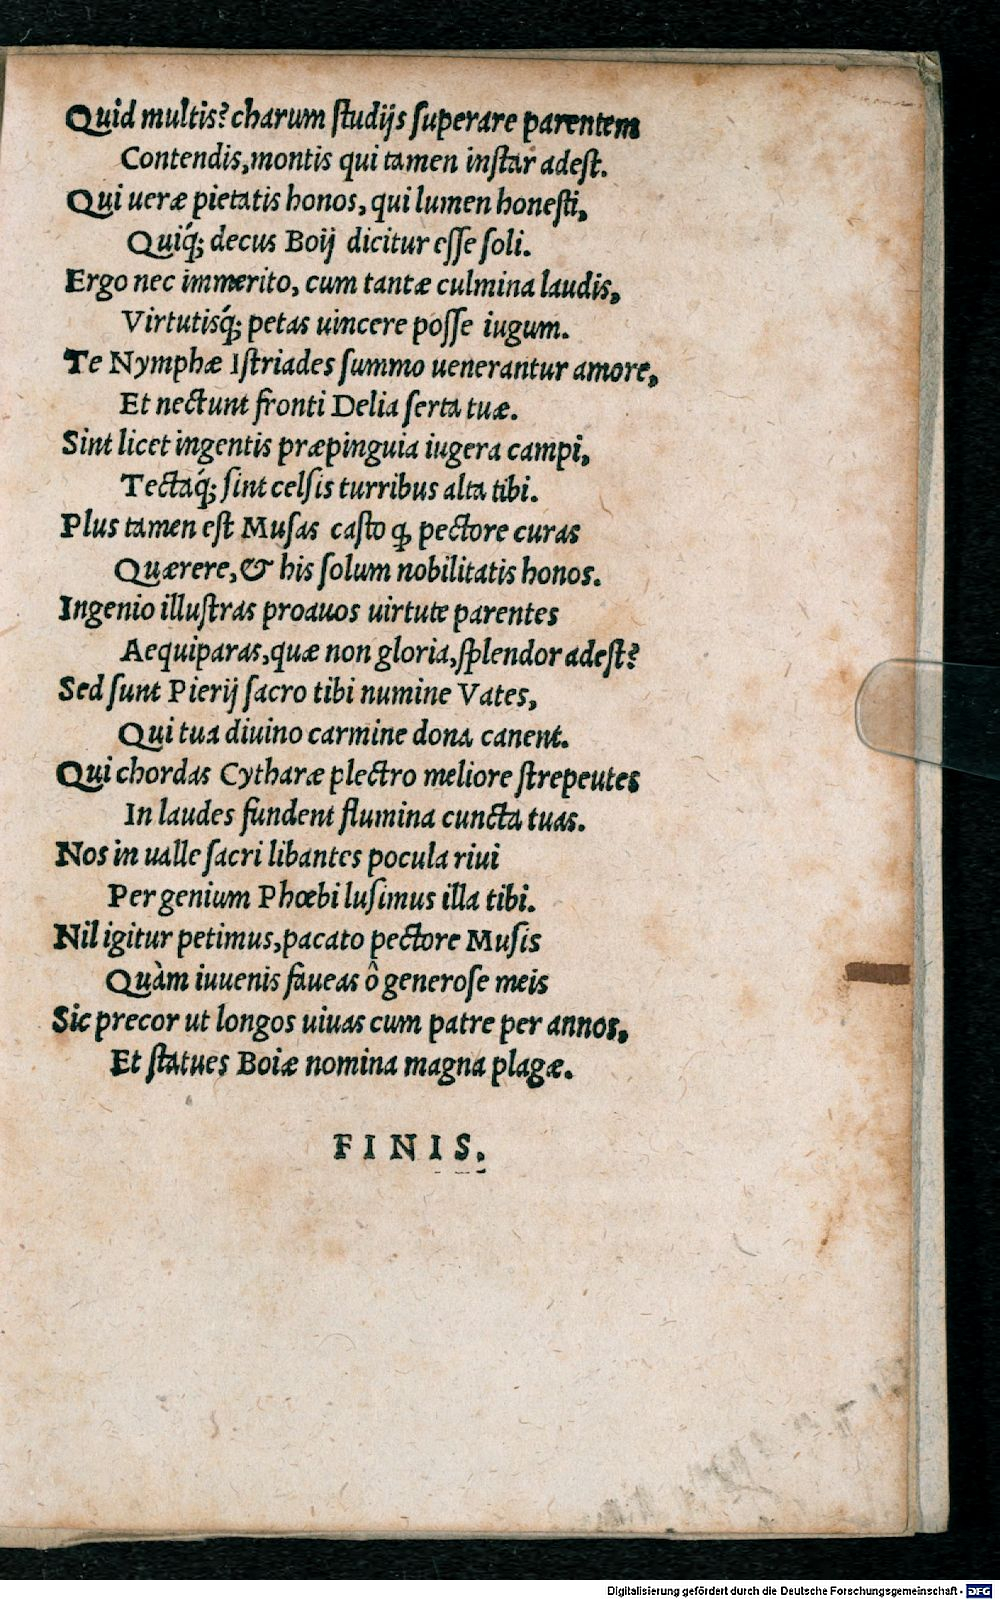 Quid multis? charum ſtudijs ſuperare parentem
Contendis, montis qui tamen inſtar adeſt.
Qui ueræ pietatis honos, qui lumen honeſti,
Quiq́; decus Boij dicitur eſſe ſoli.
Ergo nec immerito, cum tantæ culmina laudis,
Virtutisq́; petas uincere poſſe iugum.
Te Nymphæ Iſtriades ſummo uenerantur amore,
Et nectunt fronti Delia ſerta tuæ.
Sint licet ingentis præpinguia iugera campi,
Tectaq́; ſint celſis turribus alta tibi.
Plus tamen eſt Muſas caſto q; pectore curas
Quærere, & his ſolum nobilitatis honos.
Ingenio illuſtras proauos uirtute parentes
Aequiparas, quæ non gloria, ſplendor adeſt?
Sed ſunt Pierij ſacro tibi numine Vates,
Qui tua diuino carmine dona canent.
Qui chordas Cytharæ plectro meliore ſtrepeutes
In laudes fundent flumina cuncta tuas.
Nos in ualle ſacri libantes pocula riui
Per genium Phœbi luſimus illa tibi.
Nil igitur petimus, pacato pectore Muſis
Quàm iuuenis faueas ô generoſe meis
Sic precor ut longos uiuas cum patre per annos,
Et ſtatues Boiæ nomina magna plagæ.
FINIS.
Digitalisierung gefördert durch die Deutsche Forschungsgemeinschaft - DFG